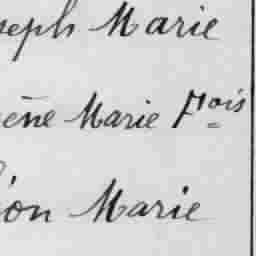 seph Marie
ène Marie Fçois
éon Marie